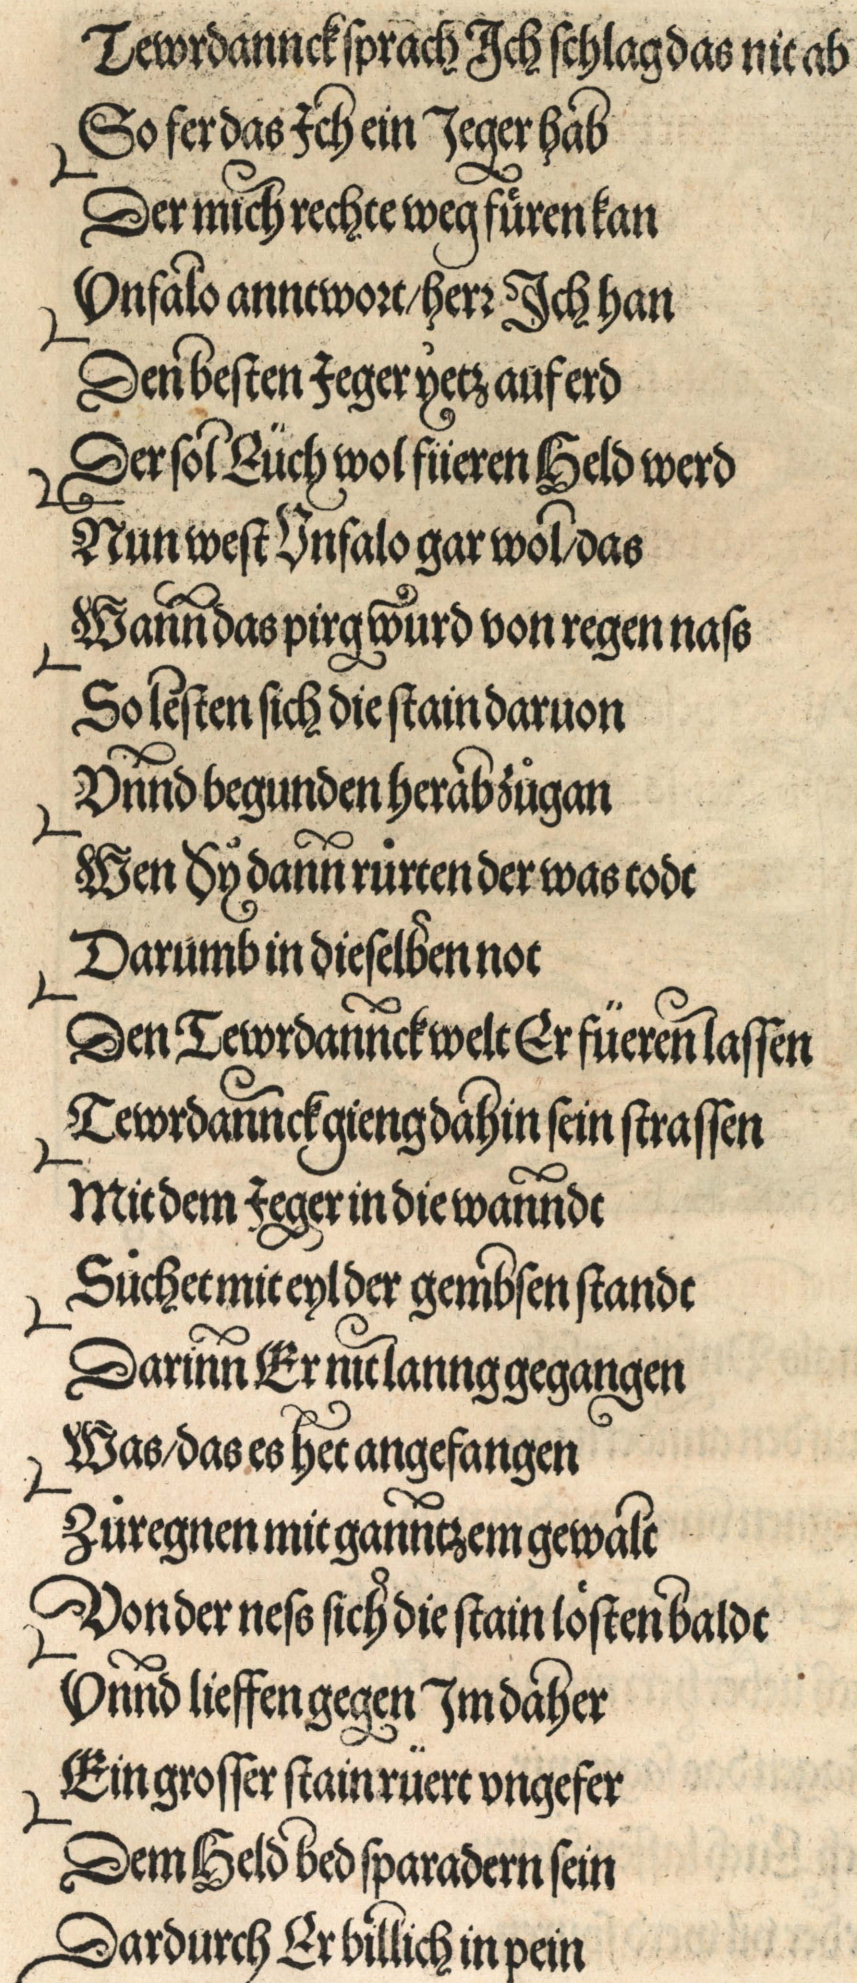 Tewrdannck sprach Ich schlag das nit ab
So fer das Ich ein Jeger hab
Der mich rechte weg füren kan
Vnfalo anntwort/herr Ich han
Den besten Jeger yetz auf erd
Der sol Eüch wol füeren Held werd
Nun west Vnfalo gar wol/das
Wann das pirg wurd von regen nass
So lesten sich die stain daruon
Vnnd begunden herab zůgan
Wen Sy dann rürten der was todt
Darumb in dieselben not
Den Tewrdannck welt Er füeren lassen
Tewrdannck gieng dahin sein strassen
Mit dem Jeger in die wanndt
Sůchet mit eyl der gembsen standt
Darinn Er nit lanng gegangen
Was/das es het angefangen
Zůregnen mit ganntzem gewalt
Von der ness sich die stain lösten baldt
Vnnd lieffen gegen Im daher
Ein grosser stain rüert vngefer
Dem Held bed sparadern sein
Dardurch Er billich in pein